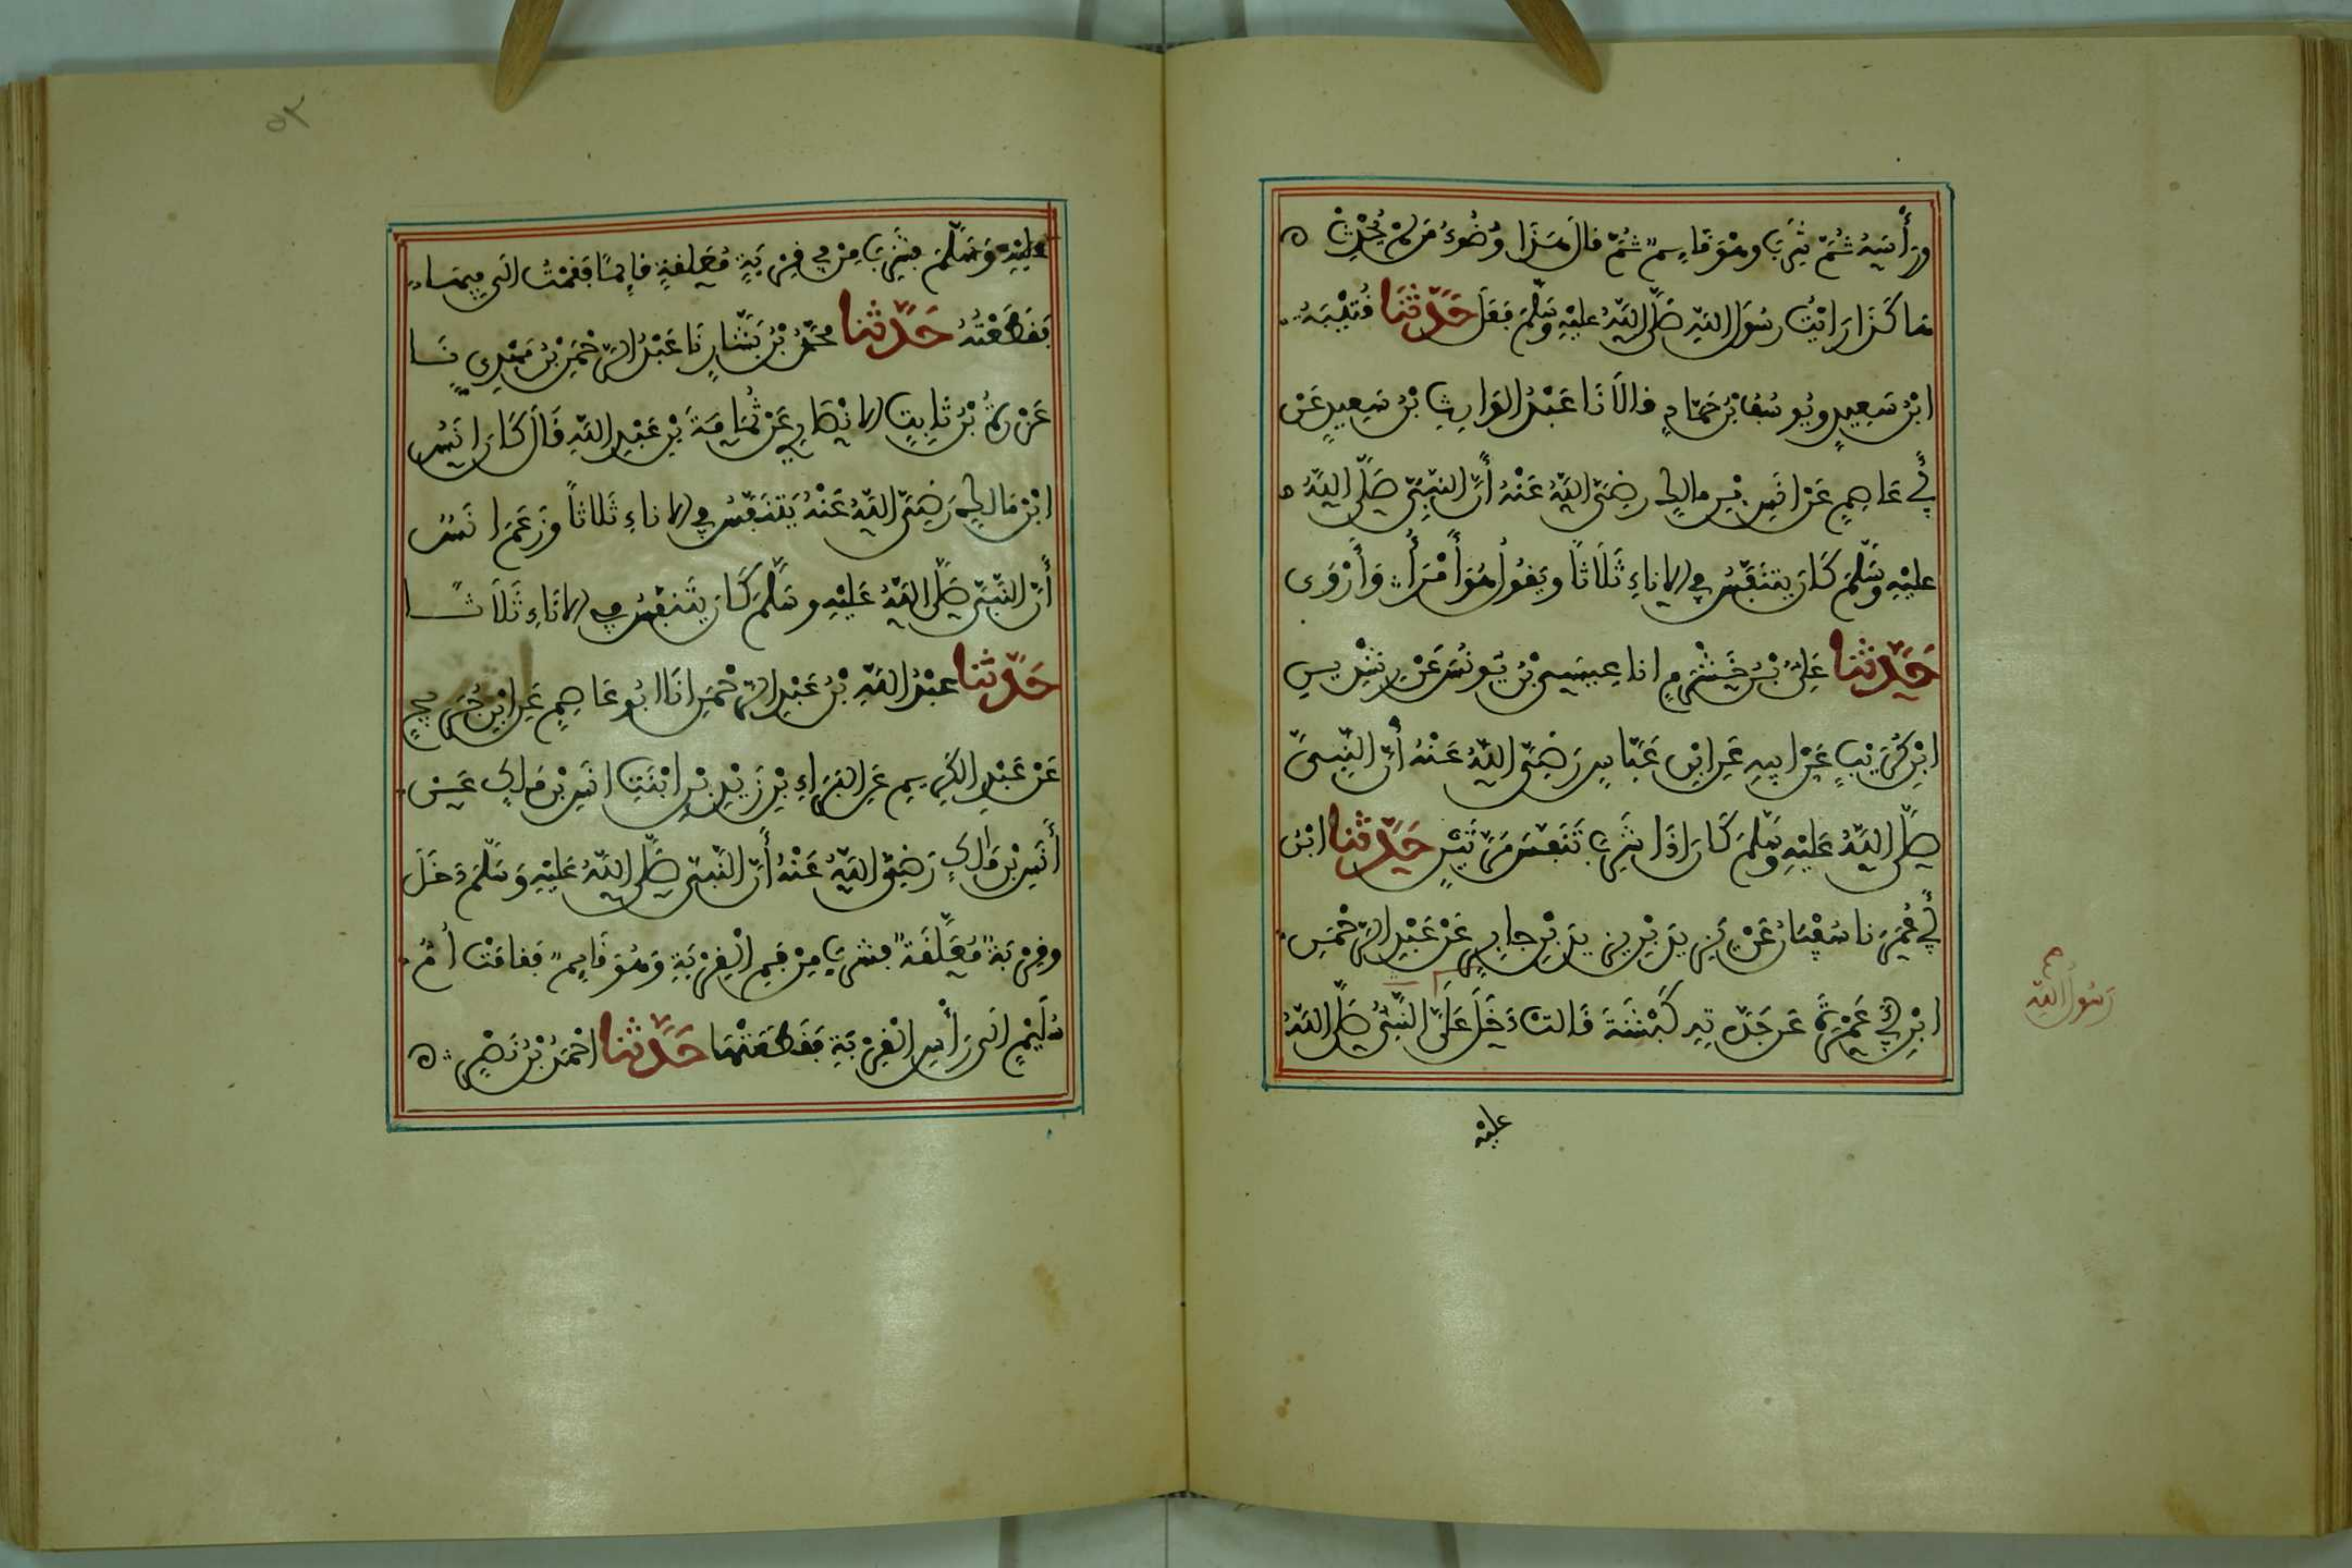 وَرَأْسَهُ ثُمَّ شَرِبَ وهُوَ قَايِمٌ ثُمَّ قال هَذَا وُضُوءُ مَن لمْ يُحْدِثْ ه
هَا كَذَا رَايْتُ رسُولَ اللهِ صَلَّى اللهُ عليْهِ وَسَلَّمَ فَعَلَ حَدَّثَنَا قُتَيْبَةُ
ابْنُ سَعِيدٍ ويُوسُفُ بْنُ حَمَّادٍ قالَا نَا عَبْدُ الوَارِثِ بْنُ سَعِيدٍ عَنْ
أَبِي عَاصِمٍ عَنْ انَسِ بْنِ مالِكٍ رضِيَ اللهُ عَنْهُ أَنَّ النبِيَّ صَلَّى اللهُ ه
عليْهِ وَسَلَّمَ كَانَ يتنَفَّسُ فِي الاناءِ ثَلَاثاً ويَقُولُ هُوَ أَمْرَأُ وَأَرْوَى
حَدَّثنَا عَلِيُّ بْنُ خَشْرَمٍ انا عِيسَى بْنُ يُونُسَ عَنْ رِشْدِينِ
ابْنِ كُرَيْبٍ عَنْ ابِيهِ عَنِ ابْنِ عَبَّاسٍ رَضِيَ اللهُ عَنْهُ أَنَّ النَّبِيَّ
صَلَّى اللهُ عَلَيْهِ وَسَلَّمَ كَانَ اذَا شَرِبَ تَنَفَّسَ مَرَّتَيْنِ حَدَّثنا ابْنُ
أَبِي عُمَرَ نا سُفْيَانُ عَنْ يَزِيدَ بْنِ يزِيدَ بْنِ جابِرٍ عَنْ عَبْدِ الرَّحْمَنِ
ابْنِ أَبِي عَمْرَةَ عَن جَدَّتِهِ كَبْشَةَ قَالت دَخَلَ عَلَيَّ النَّبِيُّ صَلَّى اللهُ
رَسُولُ اللهِ
عليْهِ
٥٢
عليْهِ وَسَلَّمَ فشَرِبَ مِنْ فِي قِرْبَةٍ مُعَلقةٍ قايمًا فقمْتُ الَى فِيهَا
فَقَطَعْتُهُ حَدَّثنا محمَّدُ بْنُ بَشَّارٍ نَا عَبْدُ الرَّحْمَنِ بْنُ مَهْدِيٍّ نَا
عَزْرَةُ بْنُ ثَابِتٍ الانْصَارِي عَنْ ثُمَامَةَ بْنِ عَبْدِ اللهِ قَالَ كَانَ انَسُ
ابْنُ مَالِكٍ رَضِيَ اللهُ عَنْهُ يَتنَفَّسُ فِي الاناءِ ثَلاثاً وَزَعَمَ انَسٌ
أَنَّ النَّبِيَّ صَلَّى اللهُ عَلَيْهِ وسَلَّمَ كَانَ يتَنفَّسُ فِي الانَاءِ ثَلَاثًا
حَدَّثنا عبْدُ اللهِ بْنُ عَبْدِ الرَّحْمَنِ انَا ابُو عَاصِمٍ عَنِ ابْنِ جُرَيْجٍ
عَنْ عَبْدِ الكَرِيمِ عَنِ البَرَاءِ بْنِ زَيْدِ بْنِ ابْنَتِ انَسِ بْنِ مَالِكٍ عَنْ
أَنَسِ بْنِ مَالِكٍ رَضِيَ اللهُ عَنْهُ أَنَّ النَّبِيَّ صَلَّى اللهُ عَلَيْهِ وَسَلَّمَ دَخَلَ
وقِرْبَةٌ مُعَلَّقَةٌ فشرِبَ مِنْ فَمِ الْقِرْبَةِ وَهُوَ قَايِمٌ فقامَتْ أُمُّ
سُلَيْمٍ الَى رَأْسِ الْقِرْبَةِ فَقَطَعَتْهَا حَدَّثنا احْمَدُ بْنُ نَصْرٍ ه